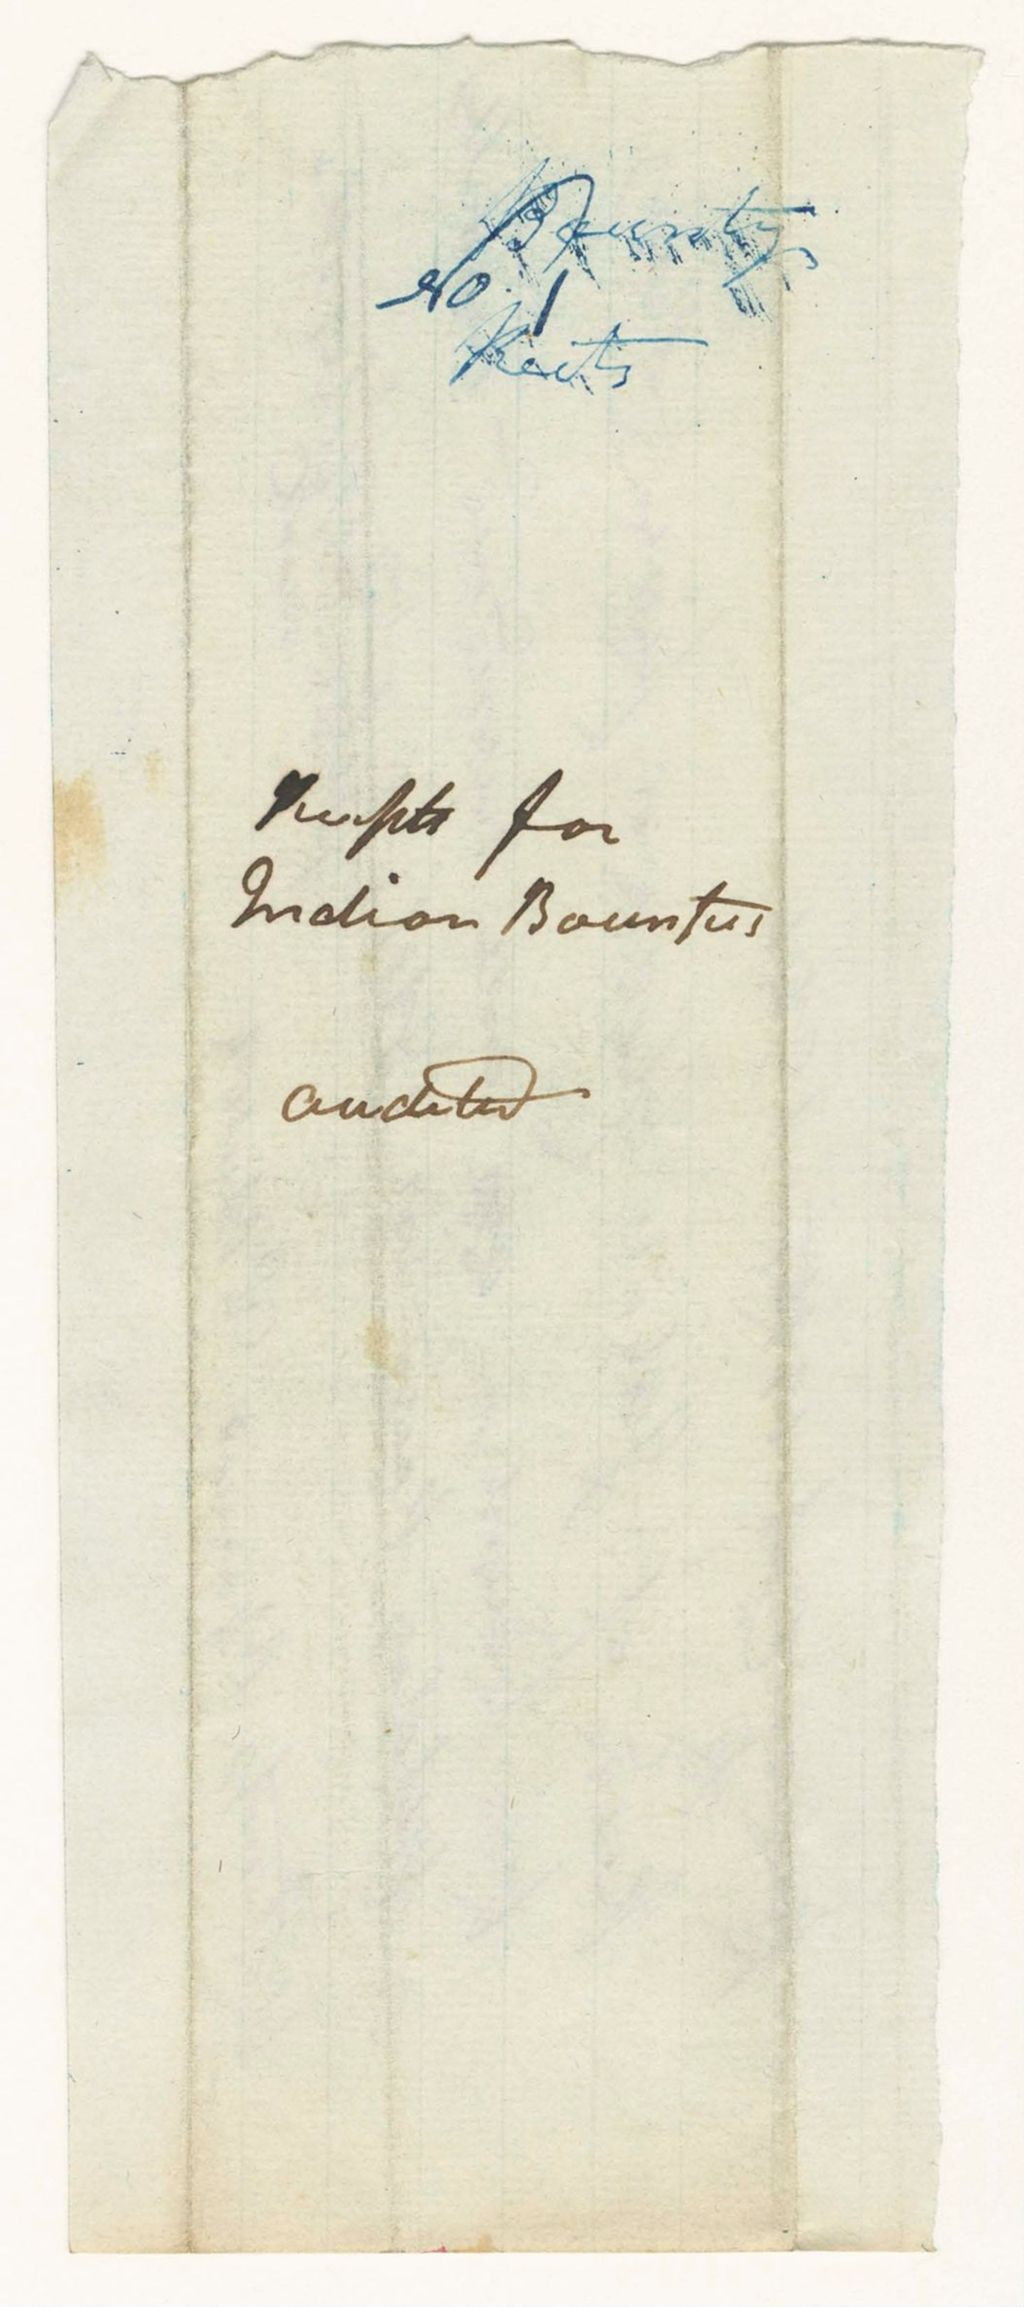 Bounty
No. 1
Rects
receipts for
Indian Bounties
audited